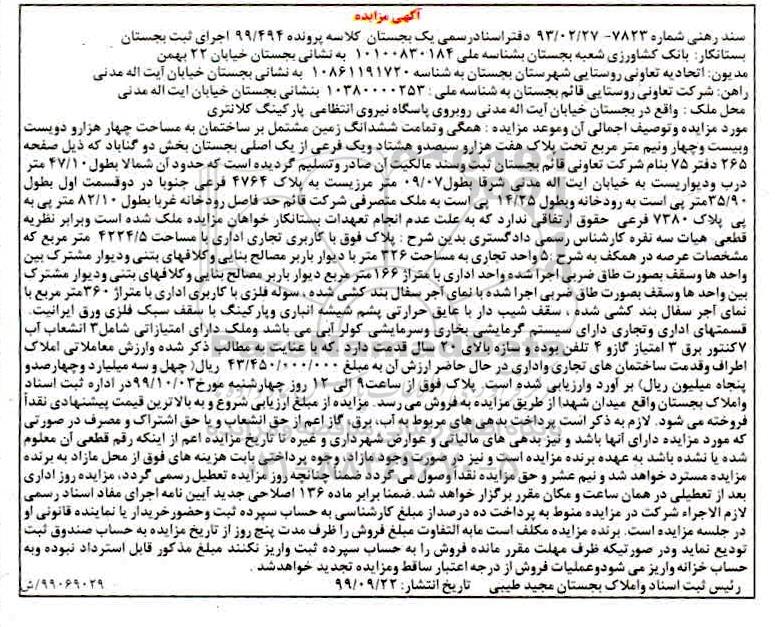 آگهی مزایده
سند رهنی شماره ۷۸۲۳- ۹۳/۰۲/۲۷ دفتراسنادرسمی یک بجستان کلاسه پرونده ۹۹/۴۹۴ اجرای ثبت بجستان
بستانکار: بانک کشاورزی شعبه بجستان بشناسه ملی ۱۰۱۰۰۸۳۰۱۸۴ به نشانی بجستان خیابان ۲۲ بهمن
مدیون: اتحادیه تعاونی روستایی شهرستان بجستان به شناسه ۱۰۸۶۱۱۹۱۷۲۰ به نشانی بجستان خیابان آیت اله مدنی
راهن: شرکت تعاونی روستایی قائم بجستان به شناسه ملی : ۱۰۳۸۰۰۰۰۲۵۳ بنشانی بجستان خیابان ایت اله مدنی
محل ملک : واقع در بجستان خیابان آیت اله مدنی روبروی پاسگاه نیروی انتظامی پارکینگ کلانتری
مورد مزایده وتوصیف اجمالی آن وموعد مزایده : همگی وتمامت ششدانگ زمین مشتمل بر ساختمان به مساحت چهار هزارو دویست
وبیست وچهار ونیم متر مربع تحت پلاک هفت هزارو سیصدو هشتاد ویک فرعی از یک اصلی بجستان بخش دو گناباد که ذیل صفحه
۲۶۵ دفتر ۷۵ بنام شرکت تعاونی قائم بجستان ثبت وسند مالکیت آن صادر وتسلیم گردیده است که حدود آن شمالا بطول ۴۷/۱۰ متر
درب ودیواریست به خیابان ایت اله مدنی شرقا بطول۰۹/۰۷ متر مرزیست به پلاک ۴۷۶۴ فرعی جنوبا در دوقسمت اول بطول
۳۵/۹۰متر پی است به رودخانه وبطول ۱۴/۳۵ پی است به ملک متصرفی شرکت قائم حد فاصل رودخانه غربا بطول ۸۲/۱۰ متر پی به
پی پلاک ۷۳۸۰ فرعی حقوق ارتفاقی ندارد که به علت عدم انجام تعهدات بستانکار خواهان مزایده ملک شده است وبرابر نظریه
قطعی هیات سه نفره کارشناس رسمی دادگستری بدین شرح : پلاک فوق با کاربری تجاری اداری با مساحت ۴۲۲۴/۵ متر مربع که
مشخصات عرصه در همکف به شرح :۵ واحد تجاری به مساحت ۲۲۶ متر با دیوار باربر مصالح بنایی وکلافهای بتنی ودیوار مشترک بین
واحد ها وسقف بصورت طاق ضربی اجرا شده واحد اداری با متراژ ۱۶۶متر مربع دیوار باربر مصالح بنایی وکلافهای بتنی ودیوار مشترک
بین واحد ها وسقف بصورت طاق ضربی اجرا شده با نمای آجر سفال بند کشی شده ، سوله فلزی با کاربری اداری با متراژ ۳۶۰متر مربع با
نمای آجر سفال بند کشی شده ، سقف شیب دار با عایق حرارتی پشم شیشه انباری وپارکینگ با سقف سبک فلزی ورق ایرانیت.
قسمتهای اداری وتجاری دارای سیستم گرمایشی بخاری وسرمایشی کولر آبی می باشد وملک دارای امتیازاتی شامل۳ انشعاب آب
۷کنتور برق ۳ امتیاز گازو ۴ تلفن بوده و سازه بالای ۲۰ سال قدمت دارد . که با عنایت به مطالب ذکر شده وارزش معاملاتی املاک
اطراف وقدمت ساختمان های تجاری واداری در حال حاضر ارزش آن به مبلغ ۴۳/۴۵۰/۰۰۰/۰۰۰ ریال( چهل و سه میلیارد وچهارصدو
پنجاه میلیون ریال) بر آورد وارزیابی شده است. پلاک فوق از ساعت۹ الی ۱۲ روز چهارشنبه مورخ۹۹/۱۰/۰۳در اداره ثبت اسناد
واملاک بجستان واقع میدان شهدا از طریق مزایده به فروش می رسد. مزایده از مبلغ ارزیابی شروع و به بالاترین قیمت پیشنهادی نقداً
فروخته می شود. لازم به ذکر است پرداخت بدهی های مربوط به آب، برق، گاز اعم از حق انشعاب و یا حق اشتراک و مصرف در صورتی
که مورد مزایده دارای آنها باشد و نیز بدهی های مالیاتی و عوارض شهرداری و غیره تا تاریخ مزایده اعم از اینکه رقم قطعی آن معلوم
شده یا نشده باشد به عهده برنده مزایده است و نیز در صورت وجود مازاد، وجوه پرداختی بابت هزینه های فوق از محل مازاد به برنده
مزایده مسترد خواهد شد و نیم عشر و حق مزایده نقداً وصول می گردد ضمناً چنانچه روز مزایده تعطیل رسمی گردد، مزایده روز اداری
بعد از تعطیلی در همان ساعت و مکان مقرر برگزار خواهد شد.ضمنا برابر ماده ۱۳۶ اصلاحی جدید آیین نامه اجرای مفاد اسناد رسمی
لازم الاجراء شرکت در مزایده منوط به پرداخت ده درصداز مبلغ کارشناسی به حساب سپرده ثبت وحضورخریدار یا نماینده قانونی او
در جلسه مزایده است. برنده مزایده مکلف است مابه التفاوت مبلغ فروش را ظرف مدت پنج روز از تاریخ مزایده به حساب صندوق ثبت
تودیع نماید ودر صورتیکه ظرف مهلت مقرر مانده فروش را به حساب سپرده ثبت واریز نکنند مبلغ مذکور قابل استرداد نبوده وبه
حساب خزانه واریز می شودوعملیات فروش از درجه اعتبار ساقط ومزایده تجدید خواهدشد .
رئیس ثبت اسناد واملاک بجستان مجید طیبی تاریخ انتشار: ۹۹/۰۹/۲۲ ۹۹۰۶۹۰۲۹/ش